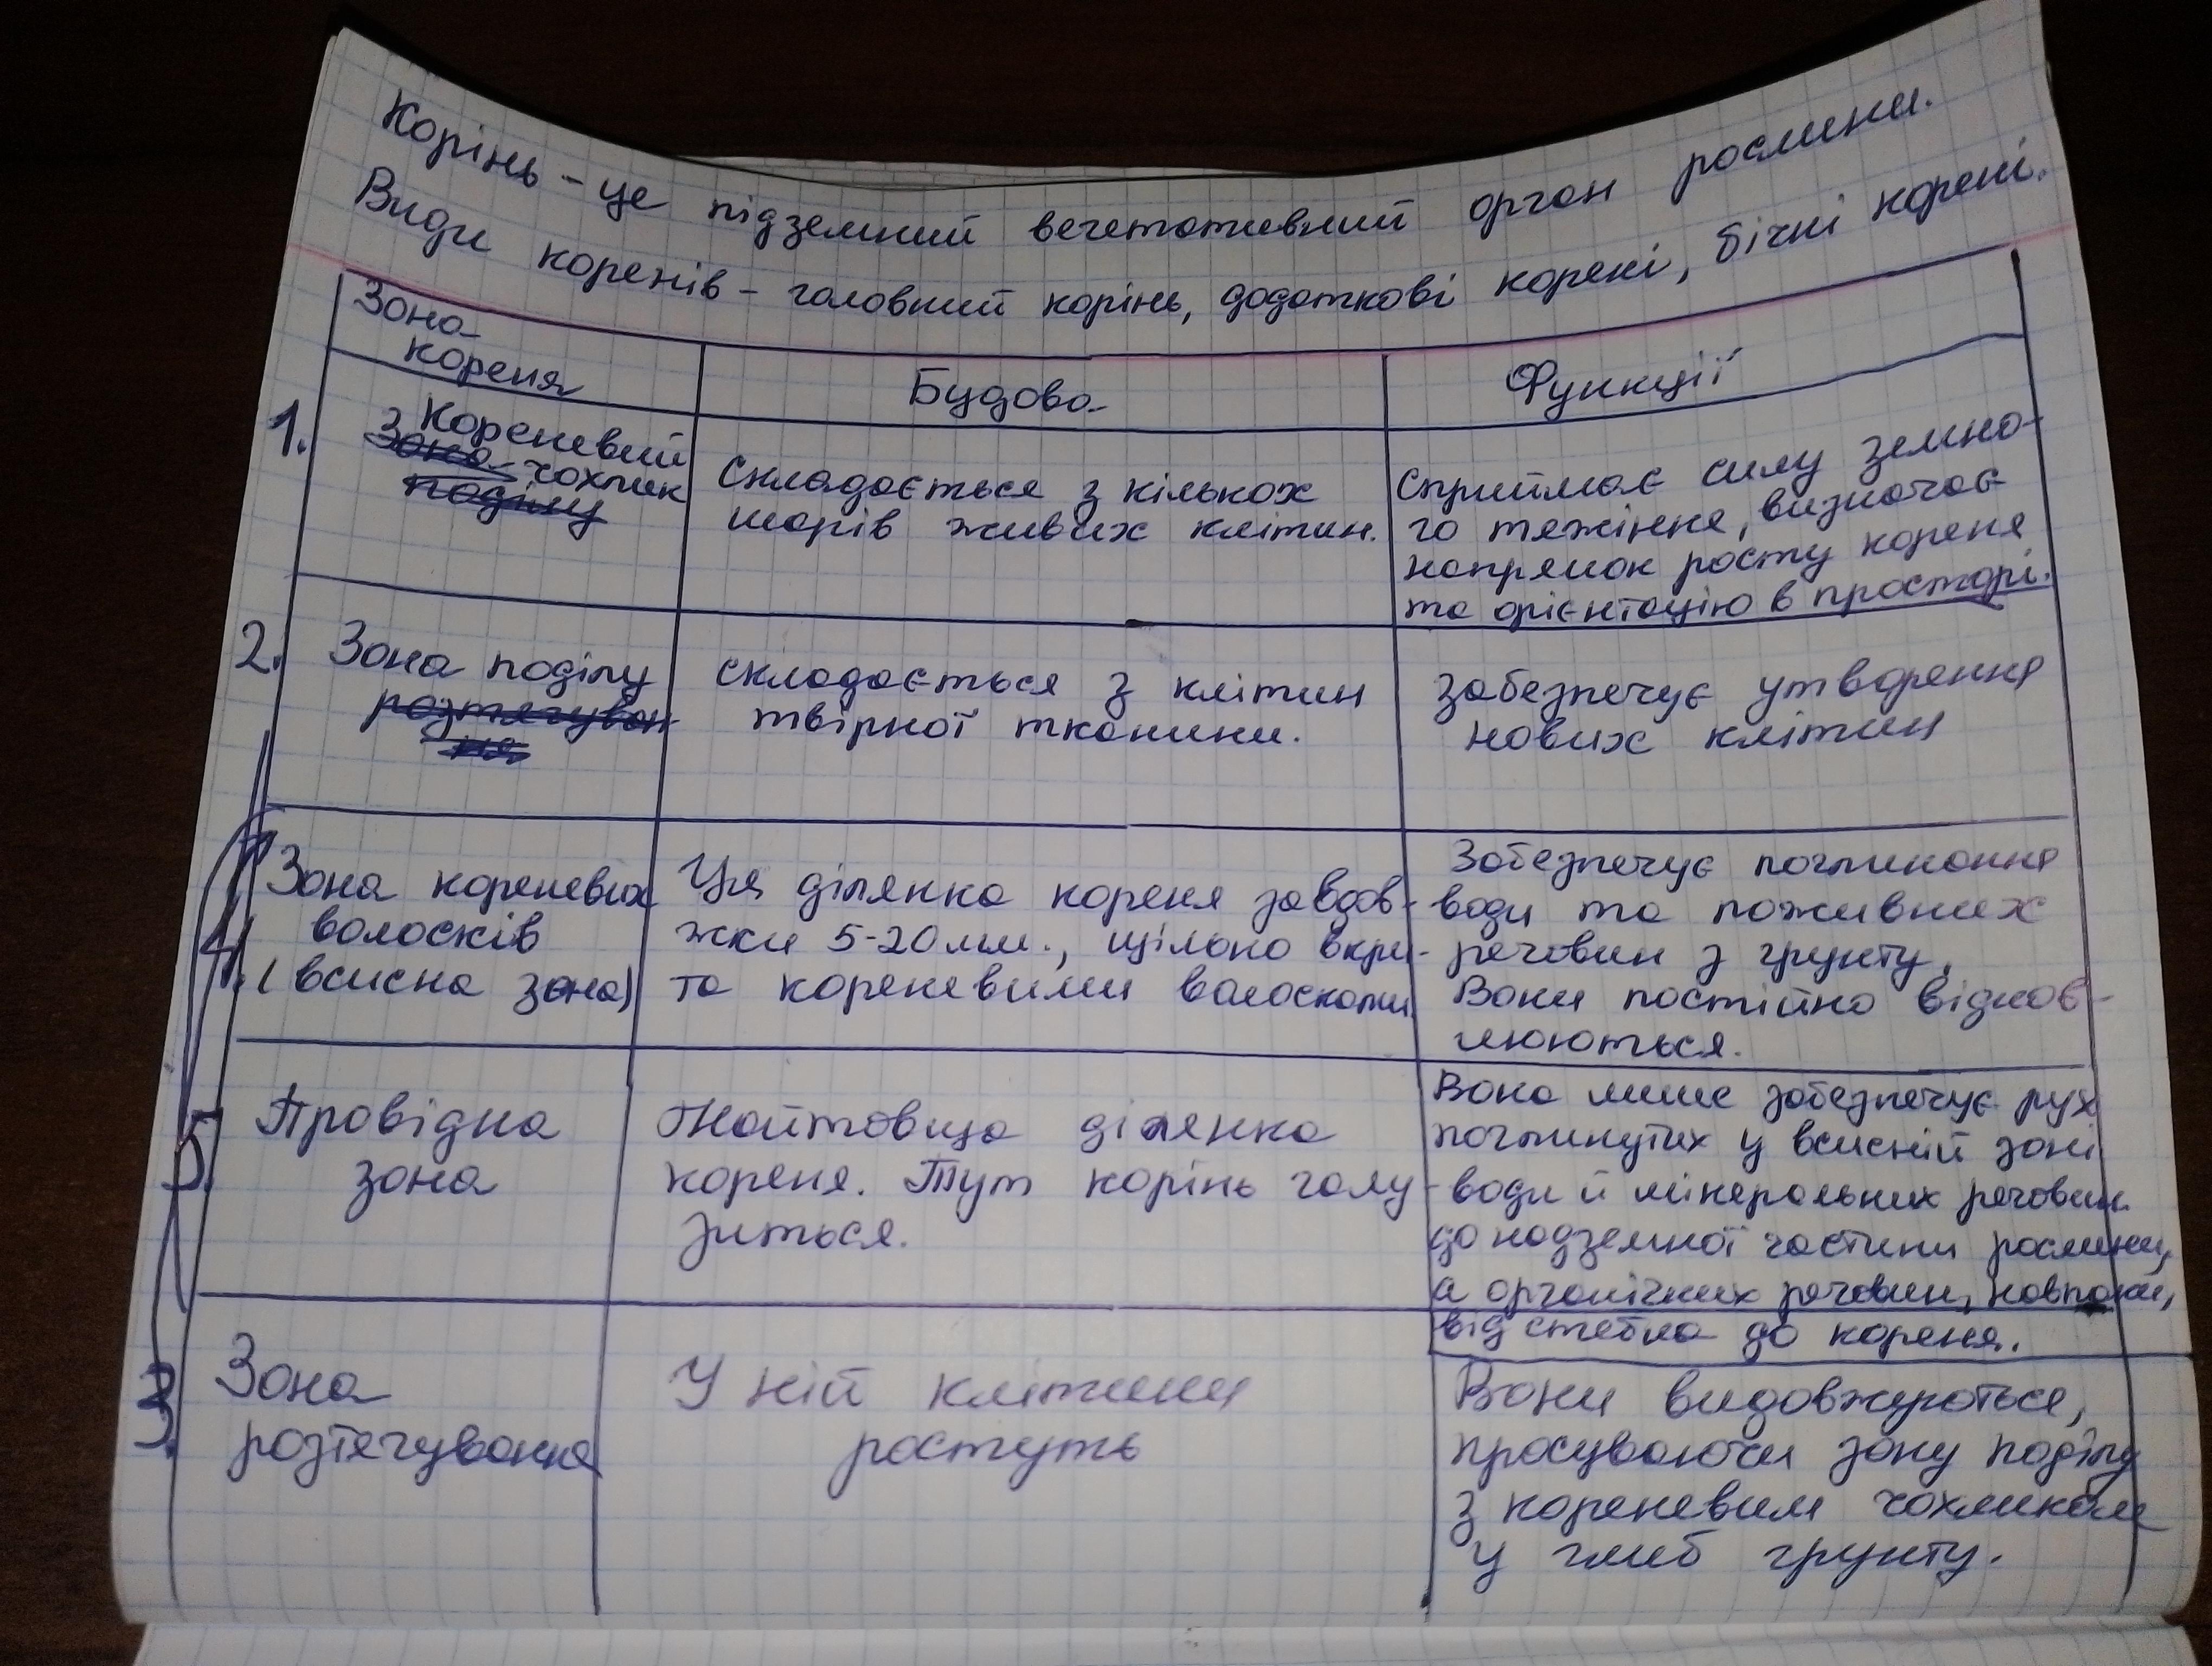 Корінь - це підземний вегетативний орган рослини.
Види коренів - головний корінь, додаткові корені, бічні корені.
Зона кореня
Будова
Функції
1.
Кореневий
чохлик
Зона
поділу
Складається з кількох
шарів живих клітин.
Сприймає силу земно-
го тяжіння, визначає
напрямок росту кореня
та орієнтацію в просторі.
2.
Зона поділу
розтягуван
ня
складається з клітин
твірної тканини.
забезпечує утворення
нових клітин
4.
Зона кореневих
волосків
(всисна зона)
Ця ділянка кореня завдов-
жки 5-20мм., щільно вкри-
та кореневими волосками
Забезпечує поглинання
води та поживних
речовин з грунту.
Вони постійно віднов-
люються.
5.
Провідна
зона
Найтовща ділянка
кореня. Тут корінь галу
зиться.
Вона лише забезпечує рух
поглинутих у всисній зоні
води й мінеральних речовин
до надземної частини рослини,
а органічних речовин, навпаки,
від стебла до кореня.
3.
Зона
розтягування
У ній клітини
ростуть
Вони видовжуються,
просуваючи зону поділу
з кореневим чохликом
у глиб грунту.